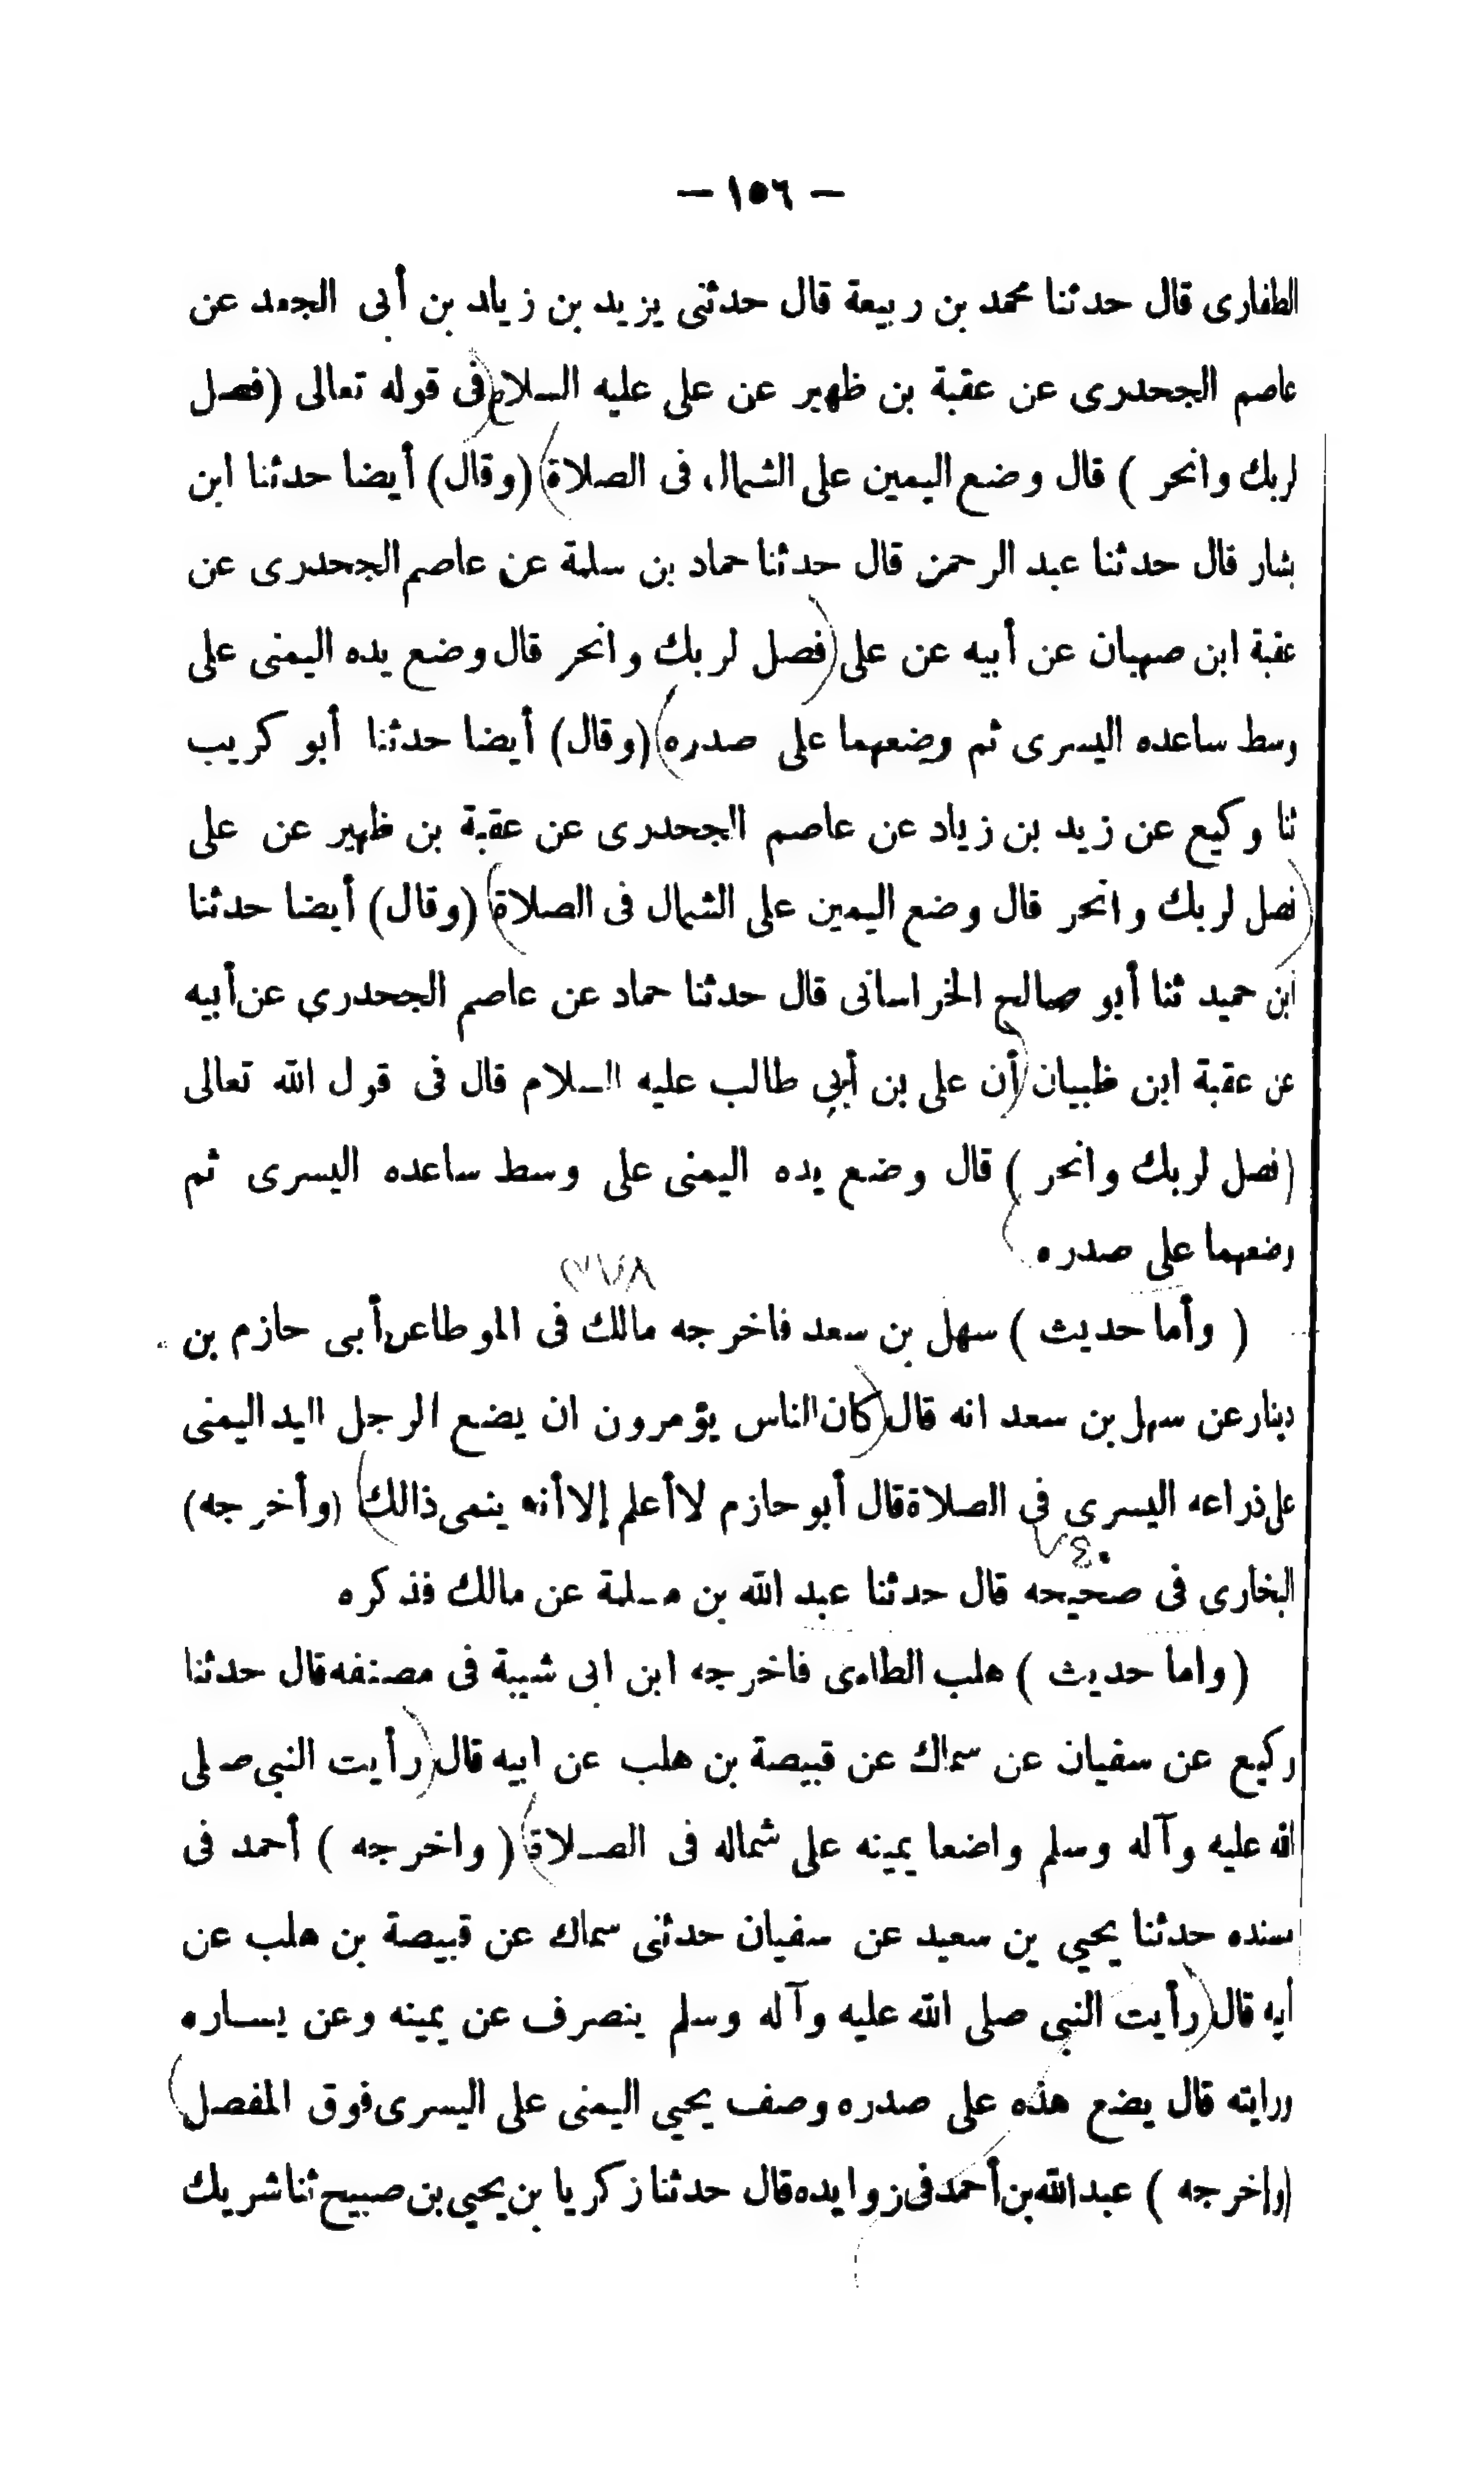 — ١٥٦ —
الطفارى قال حدثنا محمد بن ربيعة قال حدثنى يزيد بن زياد بن أبى الجعد عن
عاصم الجحدرى عن عقبة بن ظهير عن على عليه السلام (فى قوله تعالى (فصل
لربك وانحر ) قال وضع اليمين على الشمال فى الصلاة) (وقال) أيضا حدثنا ابن
بشار قال حدثنا عبد الرحمن قال حدثنا حماد بن سلمة عن عاصم الجحدرى عن
عقبة ابن صهبان عن أبيه عن على (فصل لربك وانحر قال وضع يده اليمنى على
وسط ساعده اليسرى ثم وضعهما على صدره) (وقال) أيضا حدثنا أبو كريب
ثنا وكيع عن زيد بن زياد عن عاصم الجحدرى عن عقبة بن ظهير عن على
(فصل لربك وانحر قال وضع اليمين على الشمال فى الصلاة) (وقال) أيضا حدثنا
ابن حميد ثنا أبو صالح الخراسانى قال حدثنا حماد عن عاصم الجحدرى عن أبيه
عن عقبة ابن ظبيان (أن على بن أبي طالب عليه السلام قال فى قول الله تعالى
(فصل لربك وانحر ) قال وضع يده اليمنى على وسط ساعده اليسرى ثم
وضعهما على صدره )
٣٧٨
( وأما حديث ) سهل بن سعد فاخرجه مالك فى الموطاعن أبى حازم بن
دينار عن سهل بن سعد انه قال (كان الناس يؤمرون ان يضع الرجل اليد اليمنى
على ذراعه اليسرى في الصلاة قال أبو حازم لا أعلم إلا أنه ينمى ذالك) (وأخرجه)
٧٤٠
البخارى فى صحيحه قال حدثنا عبد الله بن مسلمة عن مالك فذكره
( واما حديث ) هلب الطاءى فاخرجه ابن ابى شيبة فى مصنفه قال حدثنا
وكيع عن سفيان عن سماك عن قبيصة بن هلب عن ابيه قال (رأيت النبى صلى
الله عليه وآله وسلم واضعا يمينه على شماله فى الصلاة) ( واخرجه ) أحمد فى
مسنده حدثنا يحيي بن سعيد عن سفيان حدثنى سماك عن قبيصة بن هلب عن
أيه قال (رأيت النبى صلى الله عليه وآله وسلم ينصرف عن يمينه وعن يساره
ورايته قال يضع هذه على صدره وصف يحيي اليمنى على اليسرى فوق المفصل)
(واخرجه ) عبد الله بن أحمد فى زوايده قال حدثنا زكريا بن يحيي بن صبيح ثنا شريك